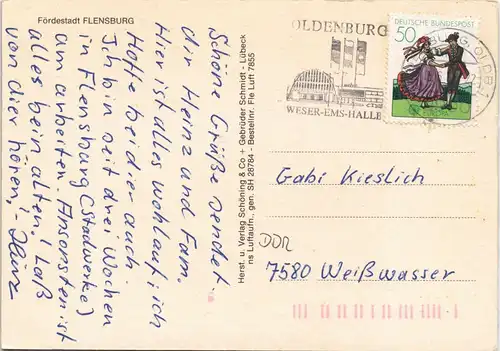 Fördestadt FLENSBURG
Schöne Grüße sendet
dir Heinz und Fam.
Hier ist alles wohlauf, ich
Hoffe bei dier auch.
Ich bin seit drei Wochen
in Flensburg (Stadwerke)
am arbeiten. Ansonsten ist
alles beim alten. Laß
von dier hören,!
Heinz
Herst. u. Verlag Schöning & Co + Gebrüder Schmidt - Lübeck
ns Luftaufn., gen. SH 28784 - Bestellnr. Fle Luft 7855
OLDENBURG
WESER-EMS-HALLE
DEUTSCHE BUNDESPOST
50
EUROPA
Gabi Kieslich
DDR
7580 Weißwasser